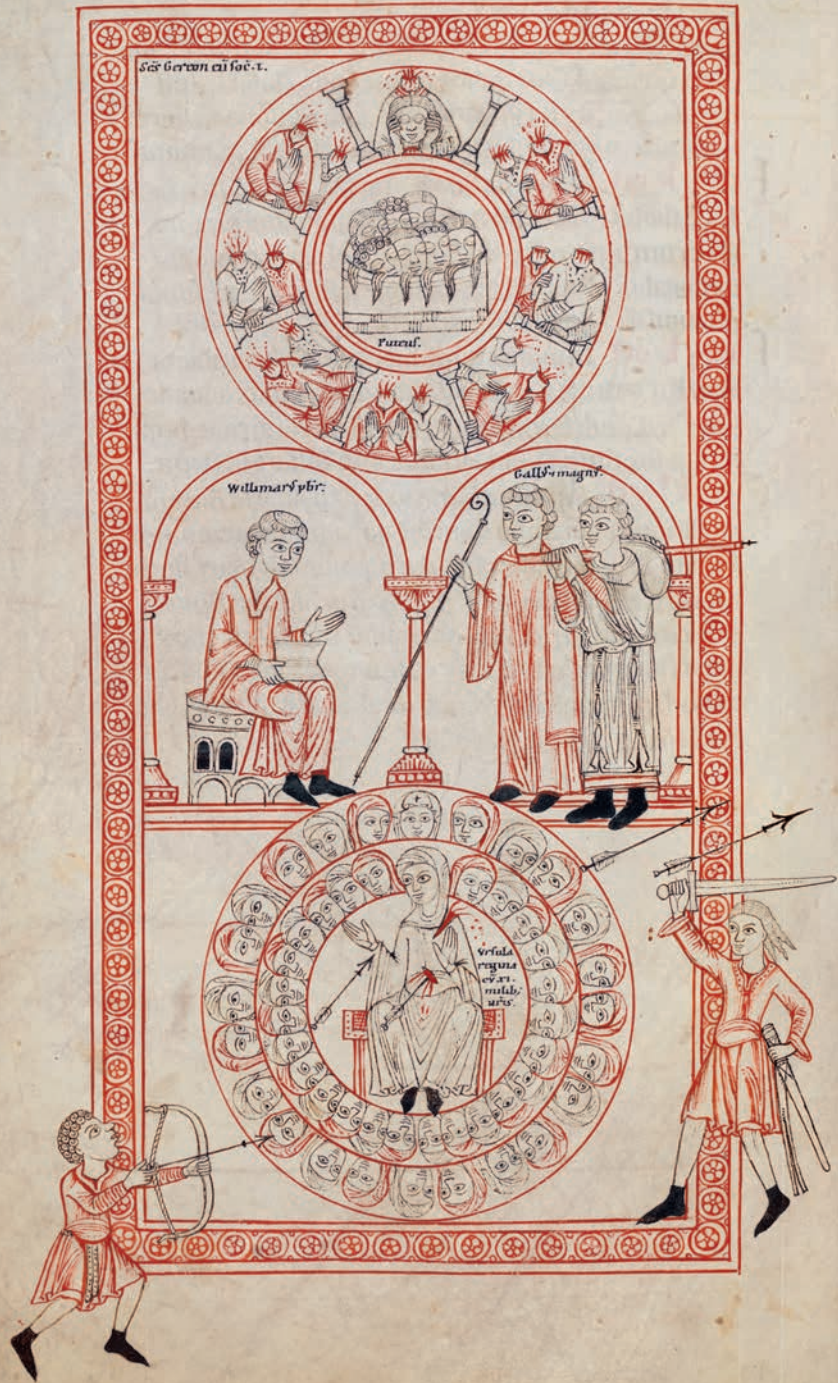 Scs Gereon cū soc. L.
Puteus.
Willimarꝰ pbr:
Gallꝰ magnꝰ:
Vrsula
regina
cū xi
milib;